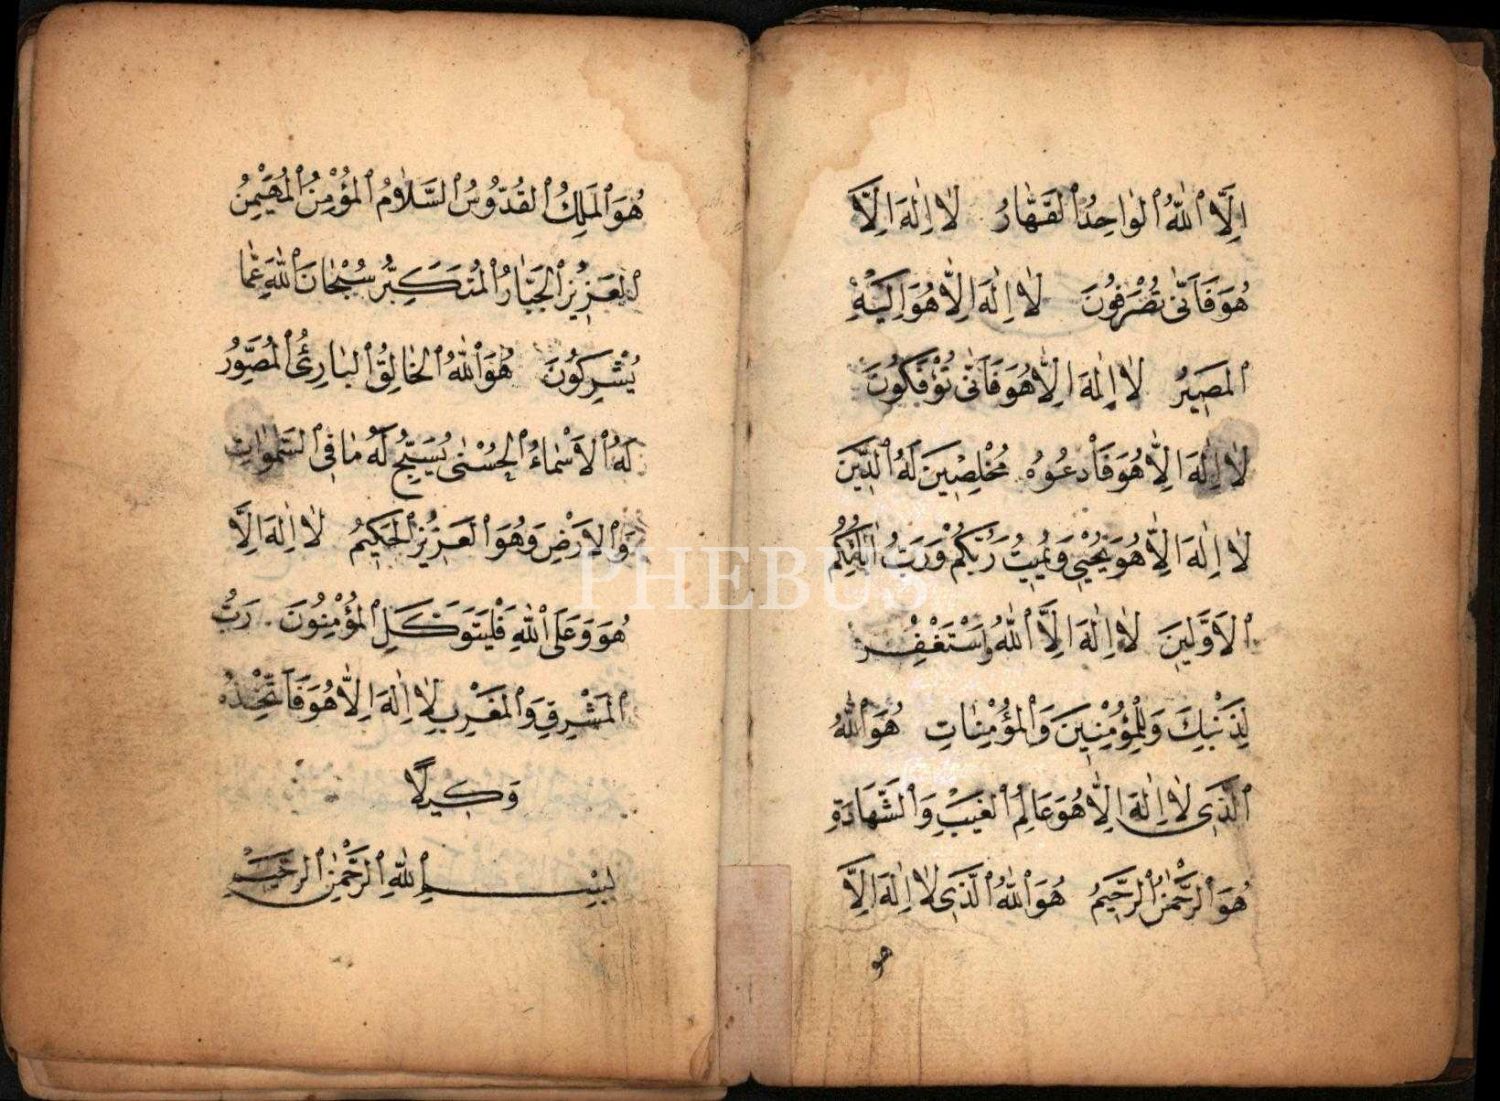 اِلَّا ٱللّٰهُ ٱلْوٰاحِدُ ٱلْقَهّٰارُ لٰا اِلٰهَ اِلَّا
هُوَ فَاَنّٰى تُصْرَفُونَ لٰا اِلٰهَ اِلّٰا هُوَ اِلَيْهِ
ٱلْمَصِيرُ لٰا اِلٰهَ اِلّٰا هُوَ فَاَنّٰى تُؤْفَكُونَ
لٰا اِلٰهَ اِلّٰا هُوَ فَٱدْعُوهُ مُخْلِصِينَ لَهُ ٱلدِّينَ
لٰا اِلٰهَ اِلّٰا هُوَ يُحْيِي وَيُمِيتُ رَبُّكُمْ وَرَبُّ اٰبٰائِكُمُ
ٱلْاَوَّلِينَ لٰا اِلٰهَ اِلَّا ٱللّٰهُ وَٱسْتَغْفِرْ
لِذَنْبِكَ وَلِلْمُؤْمِنِينَ وَٱلْمُؤْمِنٰاتِ هُوَ ٱللّٰهُ
ٱلَّذِى لٰا اِلٰهَ اِلّٰا هُوَ عَالِمُ ٱلْغَيْبِ وَٱلشَّهَادَةِ
هُوَ ٱلرَّحْمٰنُ ٱلرَّحِيمُ هُوَ ٱللّٰهُ ٱلَّذِى لٰا اِلٰهَ اِلَّا
هو
هُوَ ٱلْمَلِكُ ٱلْقُدُّوسُ ٱلسَّلٰامُ ٱلْمُؤْمِنُ ٱلْمُهَيْمِنُ
ٱلْعَزِيزُ ٱلْجَبّٰارُ ٱلْمُتَكَبِّرُ سُبْحٰانَ ٱللّٰهِ عَمّٰا
يُشْرِكُونَ هُوَ ٱللّٰهُ ٱلْخٰالِقُ ٱلْبٰارِئُ ٱلْمُصَوِّرُ
لَهُ ٱلْاَسْمٰاءُ ٱلْحُسْنٰى يُسَبِّحُ لَهُ مٰا فِى ٱلسَّمٰوٰاتِ
وَٱلْاَرْضِ وَهُوَ ٱلْعَزِيزُ ٱلْحَكِيمُ لٰا اِلٰهَ اِلَّا
هُوَ وَعَلَى ٱللّٰهِ فَلْيَتَوَكَّلِ ٱلْمُؤْمِنُونَ رَبُّ
ٱلْمَشْرِقِ وَٱلْمَغْرِبِ لٰا اِلٰهَ اِلّٰا هُوَ فَٱتَّخِذْهُ
وَكِيلًا
بِسْمِ ٱللّٰهِ ٱلرَّحْمٰنِ ٱلرَّحِيمِ
PHEBUS